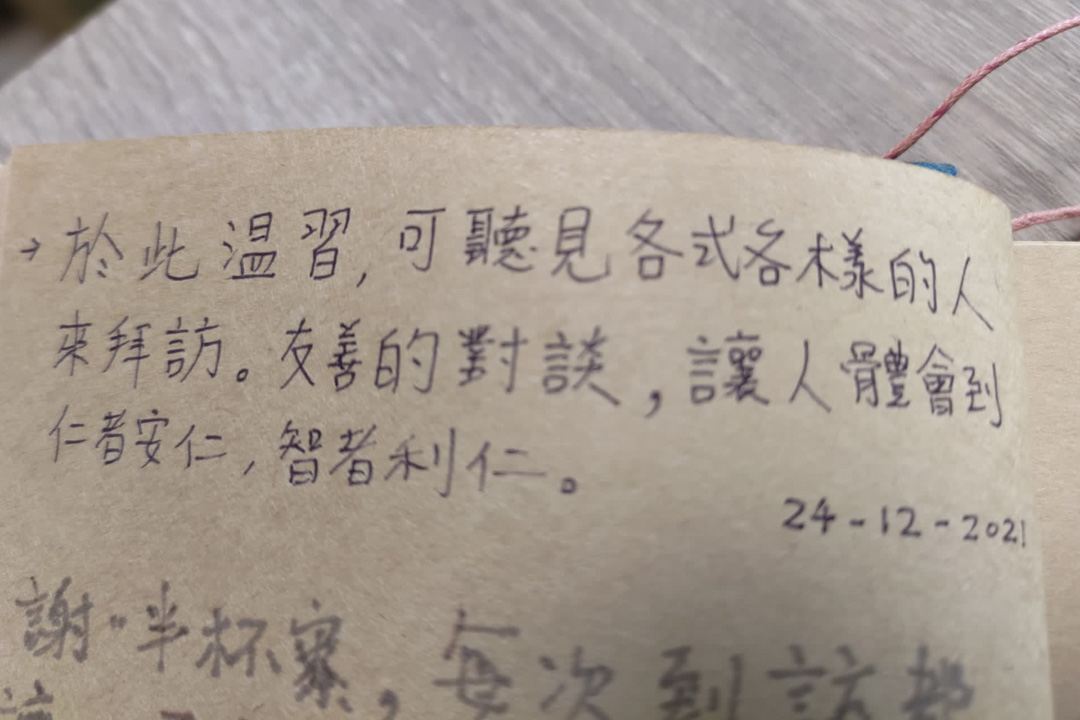 →於此温習,可聽見各式各樣的人
來拜訪。友善的對談,讓人體會到
仁者安仁,智者利仁。
24-12-2021
謝"半杯寮,每次到訪都